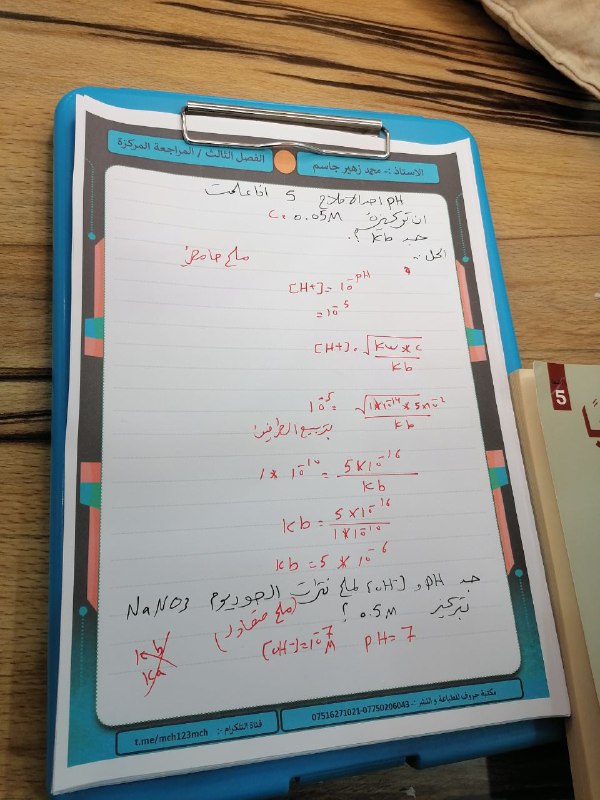 الاستاذ :- محمد زهير جاسم
الفصل الثالث / المراجعة المركزة
pH احد الاملاح 5 اذا علمت
ان تركيزه C = 0.05M
جد Kb ؟
الحل :
ملح حامضي
[H+] = 10^-pH
= 10^-5
[H+] = √(Kw × C / Kb)
10^-5 = √(1×10^-14 × 5×10^-2 / Kb)
بتربيع الطرفين
1 × 10^-10 = 5×10^-16 / Kb
Kb = 5×10^-16 / 1×10^-10
Kb = 5 × 10^-6
جد pH و [OH-] لملح نترات الصوديوم NaNO3
بتركيز 0.5M ؟ (ملح متعادل)
[OH-] = 10^-7 M pH = 7
Kb
Ka
مكتبة حروف للطباعة و النشر :- 07750206043-07516271021
قناة التلكرام :- t.me/mch123mch
5